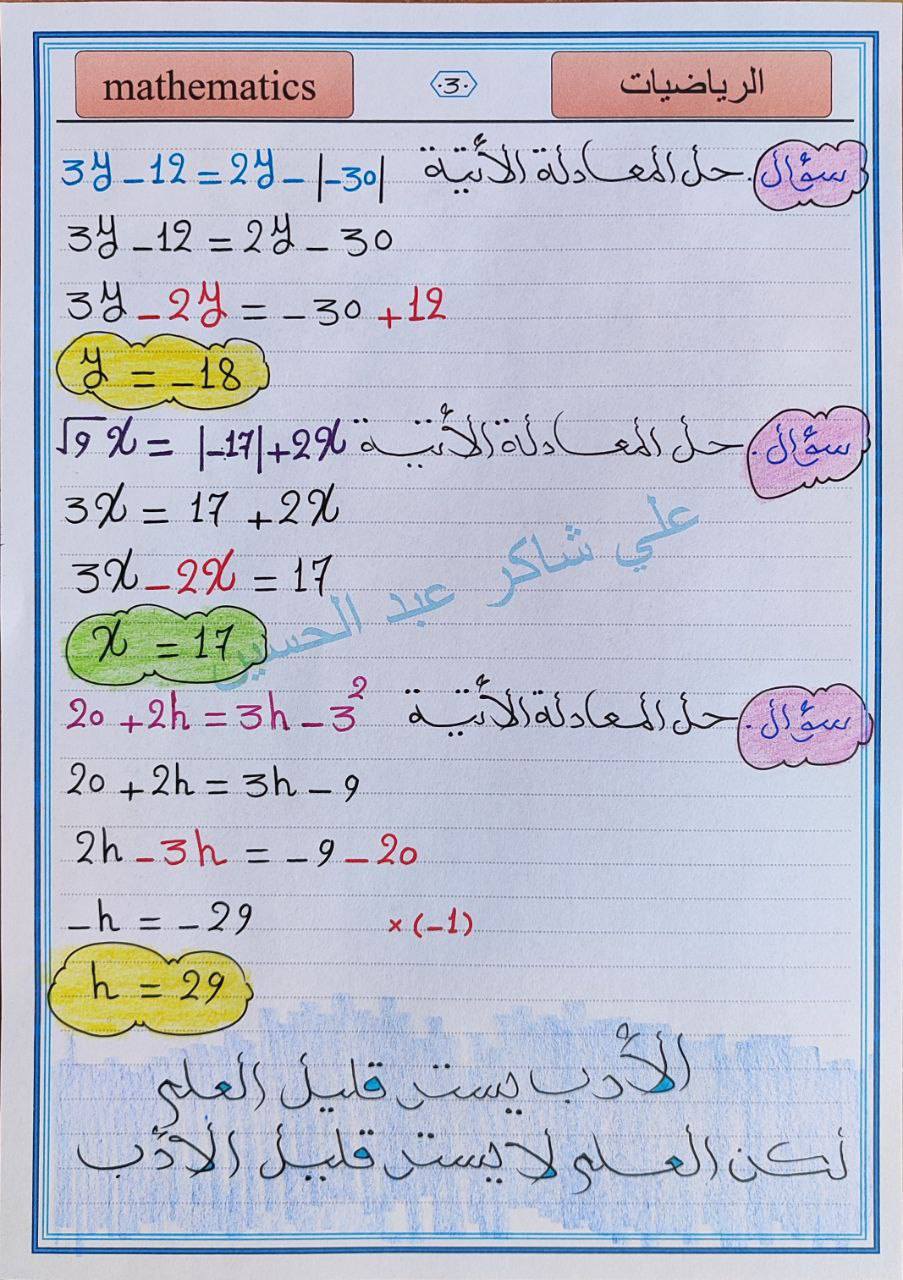 mathematics ·3· الرياضيات
سؤال. حل المعادلة الأتية 3y - 12 = 2y - |-30|
3y - 12 = 2y - 30
3y - 2y = -30 + 12
y = -18
سؤال. حل المعادلة الأتية √9 x = |-17| + 2x
3x = 17 + 2x
3x - 2x = 17
x = 17
علي شاكر عبد الحسين
سؤال. حل المعادلة الأتية 20 + 2h = 3h - 3²
20 + 2h = 3h - 9
2h - 3h = -9 - 20
-h = -29 × (-1)
h = 29
الأدب يستر قليل العلم
لكن العلم لا يستر قليل الأدب